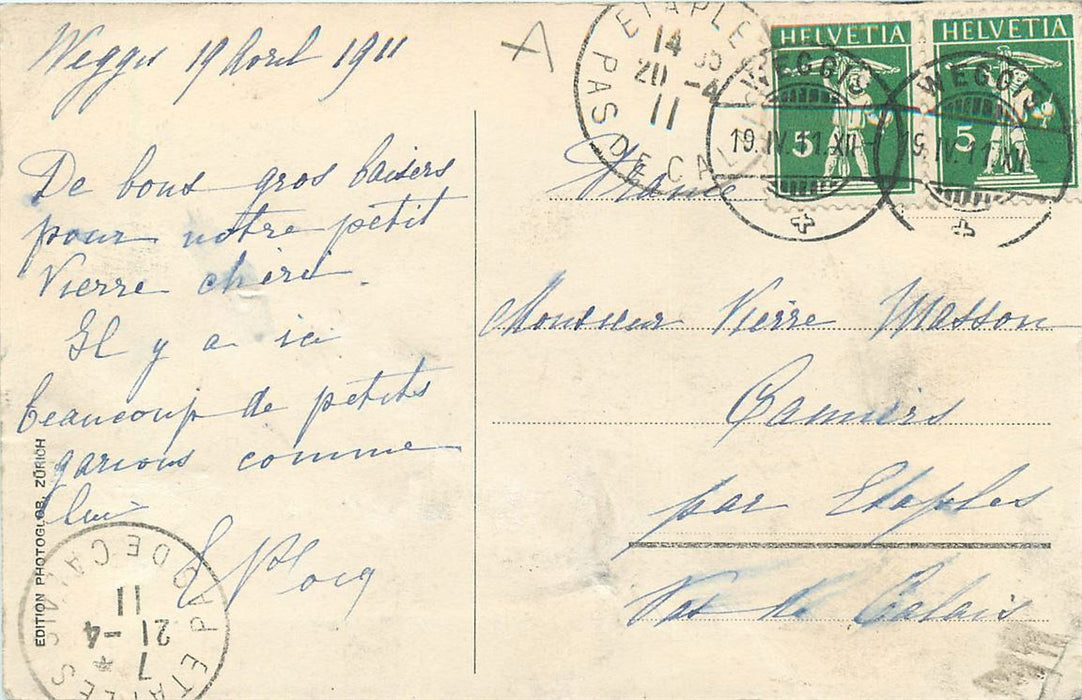 Weggis 19 Avril 1911
De bons gros baisers
pour notre petit
Pierre chéri.
Il y a ici
beaucoup de petits
garçons comme
lui
EDITION PHOTOGLOB, ZÜRICH
ETAPLES
PAS DE CALAIS
7 *
21 -4
11
ETAPLES
14
20 -4
11
PAS DE CALAIS
HELVETIA
5
HELVETIA
5
WEGGIS
19.IV.11.XII-
WEGGIS
19.IV.11.XII-
France
Monsieur Pierre Masson
Camiers
par Etaples
Pas de Calais